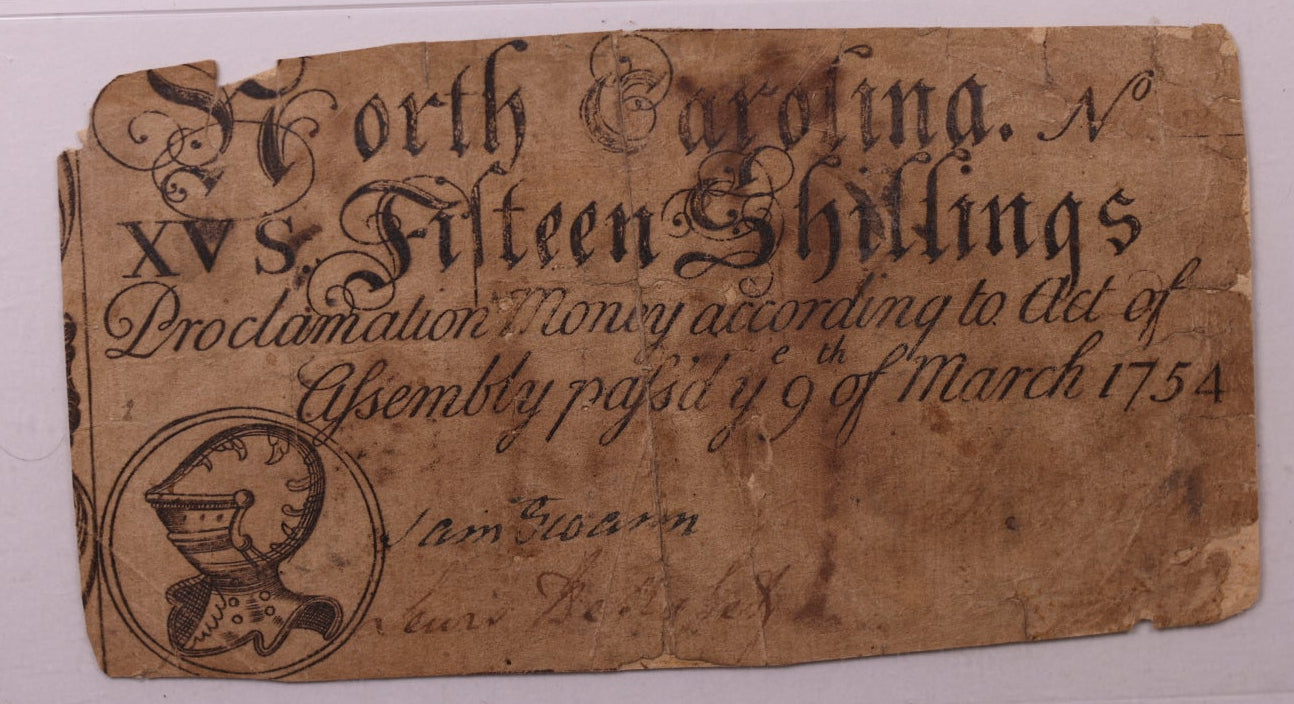 North Carolina. Nº
XVS. Fifteen Shillings
Proclamation Money according to Act of
Aſsembly paſs'd yᵉ 9ᵗʰ of March 1754
Sam Swann
Lewis DeRosset